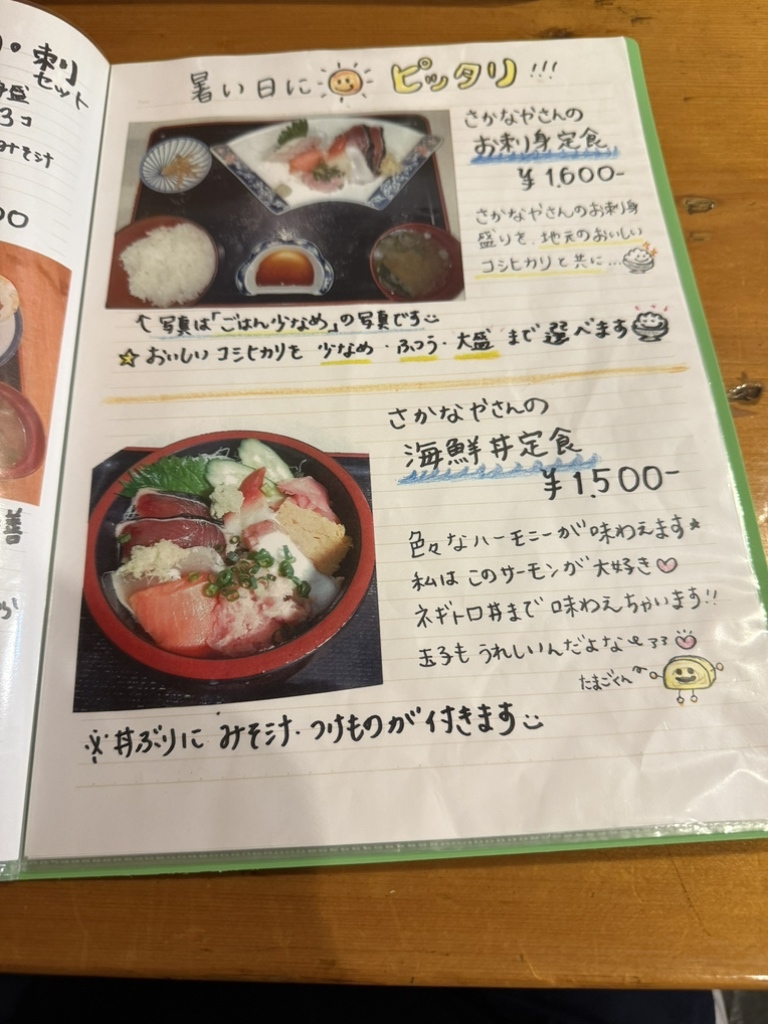 刺
セット
盛
3コ
みそ汁
00
善
か
暑い日に ピッタリ!!!
さかなやさんの
お刺身定食
¥1,600-
さかなやさんのお刺身
盛りを、地元のおいしい
コシヒカリと共に…
↑写真は「ごはん少なめ」の写真です
☆おいしいコシヒカリを 少なめ・ふつう・大盛 まで選べます
さかなやさんの
海鮮丼定食
¥1,500-
色々なハーモニーが味わえます★
私はこのサーモンが大好き♡
ネギトロ丼まで味わえちゃいます!!
玉子もうれしいんだよな〜ろろ♡
たまごくん
※丼ぶりに みそ汁・つけものが付きます